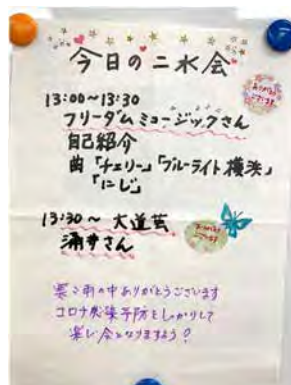 今日の二水会
13:00~13:30
フリーダムミュージックさん
自己紹介
曲「チェリー」「ブルーライト横浜」
「にじ」
13:30~ 大道芸
涌井さん
中ありがとうございます
コロナ感染予防をしっかりして
楽しい会となりますよう